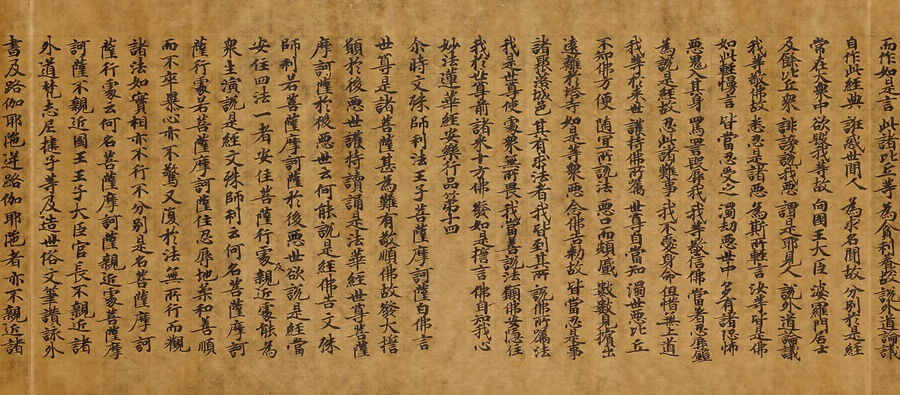 而作如是言 此諸比丘等 為貪利養故 說外道論議
自作此經典 誑惑世間人 為求名聞故 分別於是經
常在大衆中 欲毀我等故 向國王大臣 婆羅門居士
及餘比丘衆 誹謗說我惡 謂是耶見人 說外道論議
我等敬佛故 悉忍是諸惡 為斯所輕言 汝等皆是佛
如此輕慢言 皆當忍受之 濁劫惡世中 多有諸恐怖
惡鬼入其身 罵詈毀辱我 我等敬信佛 當著忍辱鎧
為說是經故 忍此諸難事 我不愛身命 但惜無上道
我等於來世 護持佛所囑 世尊自當知 濁世惡比丘
不知佛方便 隨宜所說法 惡口而顰蹙 數數見擯出
遠離於塔寺 如是等衆惡 念佛告勅故 皆當忍是事
諸聚落城邑 其有求法者 我皆到其所 說佛所囑法
我是世尊使 處衆無所畏 我當善說法 願佛安隱住
我於世尊前 諸來十方佛 發如是誓言 佛自知我心
妙法蓮華經安樂行品第十四
尒時文殊師利法王子菩薩摩訶薩白佛言
世尊是諸菩薩甚為難有敬順佛故發大誓
願於後惡世護持讀誦是法華經世尊菩薩
摩訶薩於後惡世云何能說是經佛告文殊
師利若菩薩摩訶薩於後惡世欲說是經當
安住四法一者安住菩薩行處親近處能為
衆生演說是經文殊師利云何名菩薩摩訶
薩行處若菩薩摩訶薩住忍辱地柔和善順
而不卒暴心亦不驚又復於法無所行而觀
諸法如實相亦不行不分別是名菩薩摩訶
薩行處云何名菩薩摩訶薩親近處菩薩摩
訶薩不親近國王王子大臣官長不親近諸
外道梵志尼揵子等及造世俗文筆讚詠外
書及路伽耶陁逆路伽耶陁者亦不親近諸